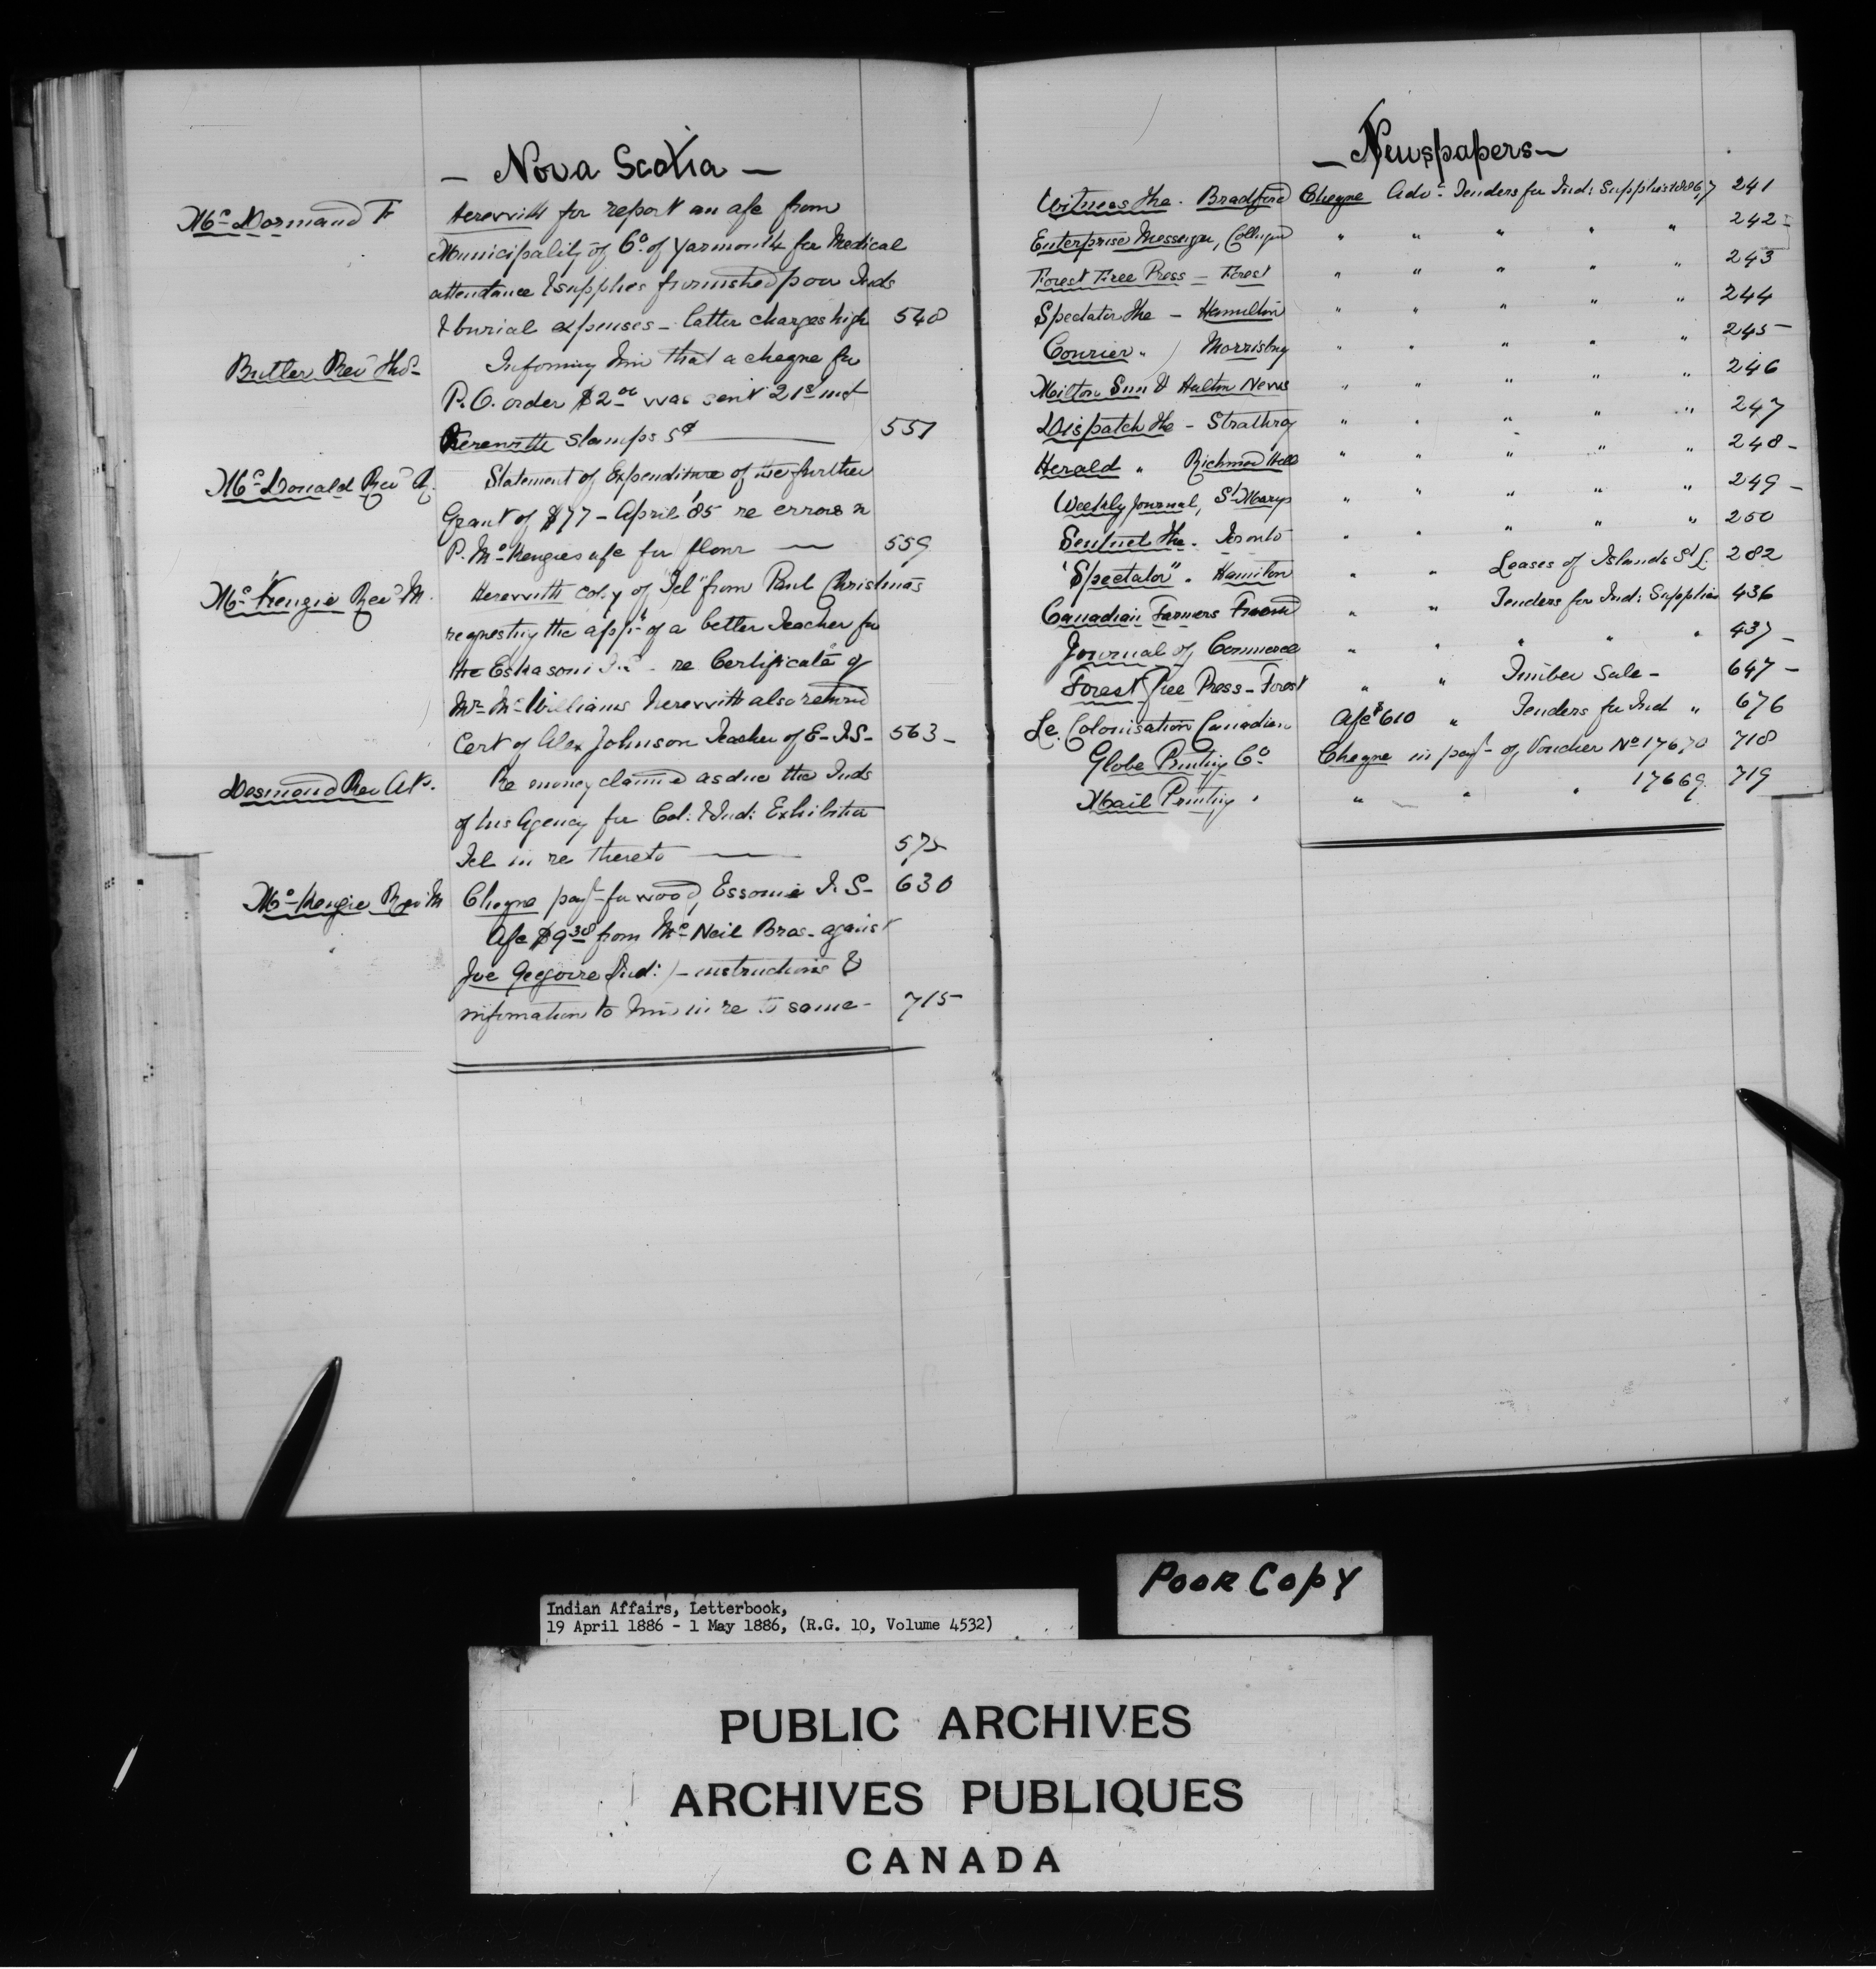 - Nova Scotia -
McDormand F
Herewith for report an a/c from
Municipality of Co. of Yarmouth for Medical
attendance & supplies furnished poor Inds
& burial expenses - latter charges high 548
Butler Revd Thos
Informing him that a cheque for
P.O. order $2.00 was sent 21st inst
Herewith stamps 5¢ 551
McDonald Revd R.
Statement of Expenditure of further
Grant of $77 - April '85 re errors in
P. McKenzies a/c for flour — 559
McKenzie Revd M.
Herewith copy of "Tel" from Paul Christmas
requesting the appt of a better Teacher for
the Eskasoni I.S. - re Certificate of
Mr. McWilliams herewith also returned
Cert of Alex Johnson Teacher of E- I.S- 563 -
Desmond Rev A P.
Re money claimed as due the Inds
of his Agency for Col: & Ind: Exhibition
Tel in re thereto — 572
McKenzie Revd M
Cheque payt for wood, I. S- 630
A/c $9.38 from McNeil Bros. against
Joe Gregoire (Ind:) - instructions &
information to him in re to same - 715
- Newspapers -
Witness The. Bradford Cheque Advg Tenders for Ind: Supplies 1886,7 241
Enterprise Messenger, " " " " " 242 -
Forest Free Press - Forest " " " " " 243
Spectator The - Hamilton " " " " " 244
Courier " Morrisburg " " " " " 245 -
Milton Sun & Halton News " " " " " 246
Dispatch The - Strathroy " " " " " 247
Herald " Richmond Hill " " " " " 248 -
Weekly Journal, St Marys " " " " " 249 -
Sentinel The. Toronto " " " " " 250
"Spectator". Hamilton " " Leases of Islands St L. 282
Canadian Farmers Friend " " Tenders for Ind: Supplies 436
Journal of Commerce " " " " " 437 -
Forest Free Press - Forest " " Timber Sale - 647 -
Le Colonisation Canadian A/c $6.10 " Tenders for Ind " 676
Globe Printing Co. Cheque in payt of Voucher No 17670 718
Mail Printing " " " " 17669 719
Poor Copy
Indian Affairs, Letterbook,
19 April 1886 - 1 May 1886, (R.G. 10, Volume 4532)
PUBLIC ARCHIVES
ARCHIVES PUBLIQUES
CANADA